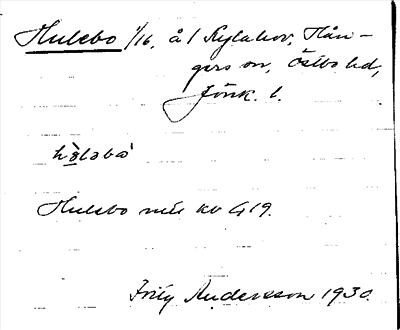 Hulebo 1/16, å 1 Kylakov, Hån-
gers sn, Östbo hd,
Jönk. l.
Hulebo mtl kv G 19.
Fritz Andersson 1930.